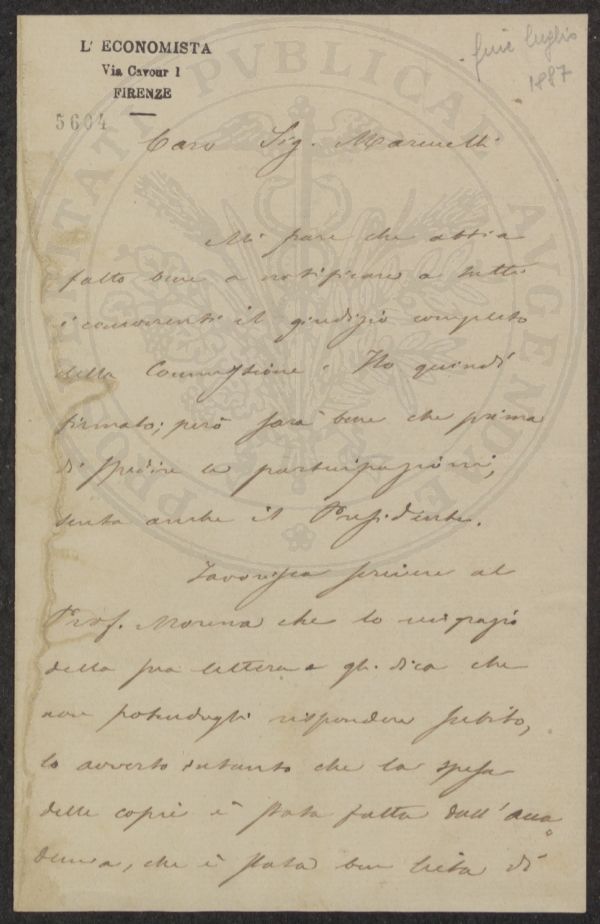 L' ECONOMISTA
Via Cavour 1
FIRENZE
5604
fine luglio
1887
Caro Sig. Marinelli
Mi pare che abbia
fatto bene a notificare a tutti
i concorrenti il giudizio completo
della Commissione. Ho quindi
firmato; però sarà bene che prima
di spedire le partecipazioni,
senta anche il Presidente.
Favorisca scrivere al
Prof. Morena che lo ringrazio
della sua lettera e gli dica che
non potendogli rispondere subito,
lo avverto intanto che la spesa
delle copie è stata fatta dall' acca
demia, che è stata ben lieta di
PROSPERITATI PVBLICAE AVGENDAE